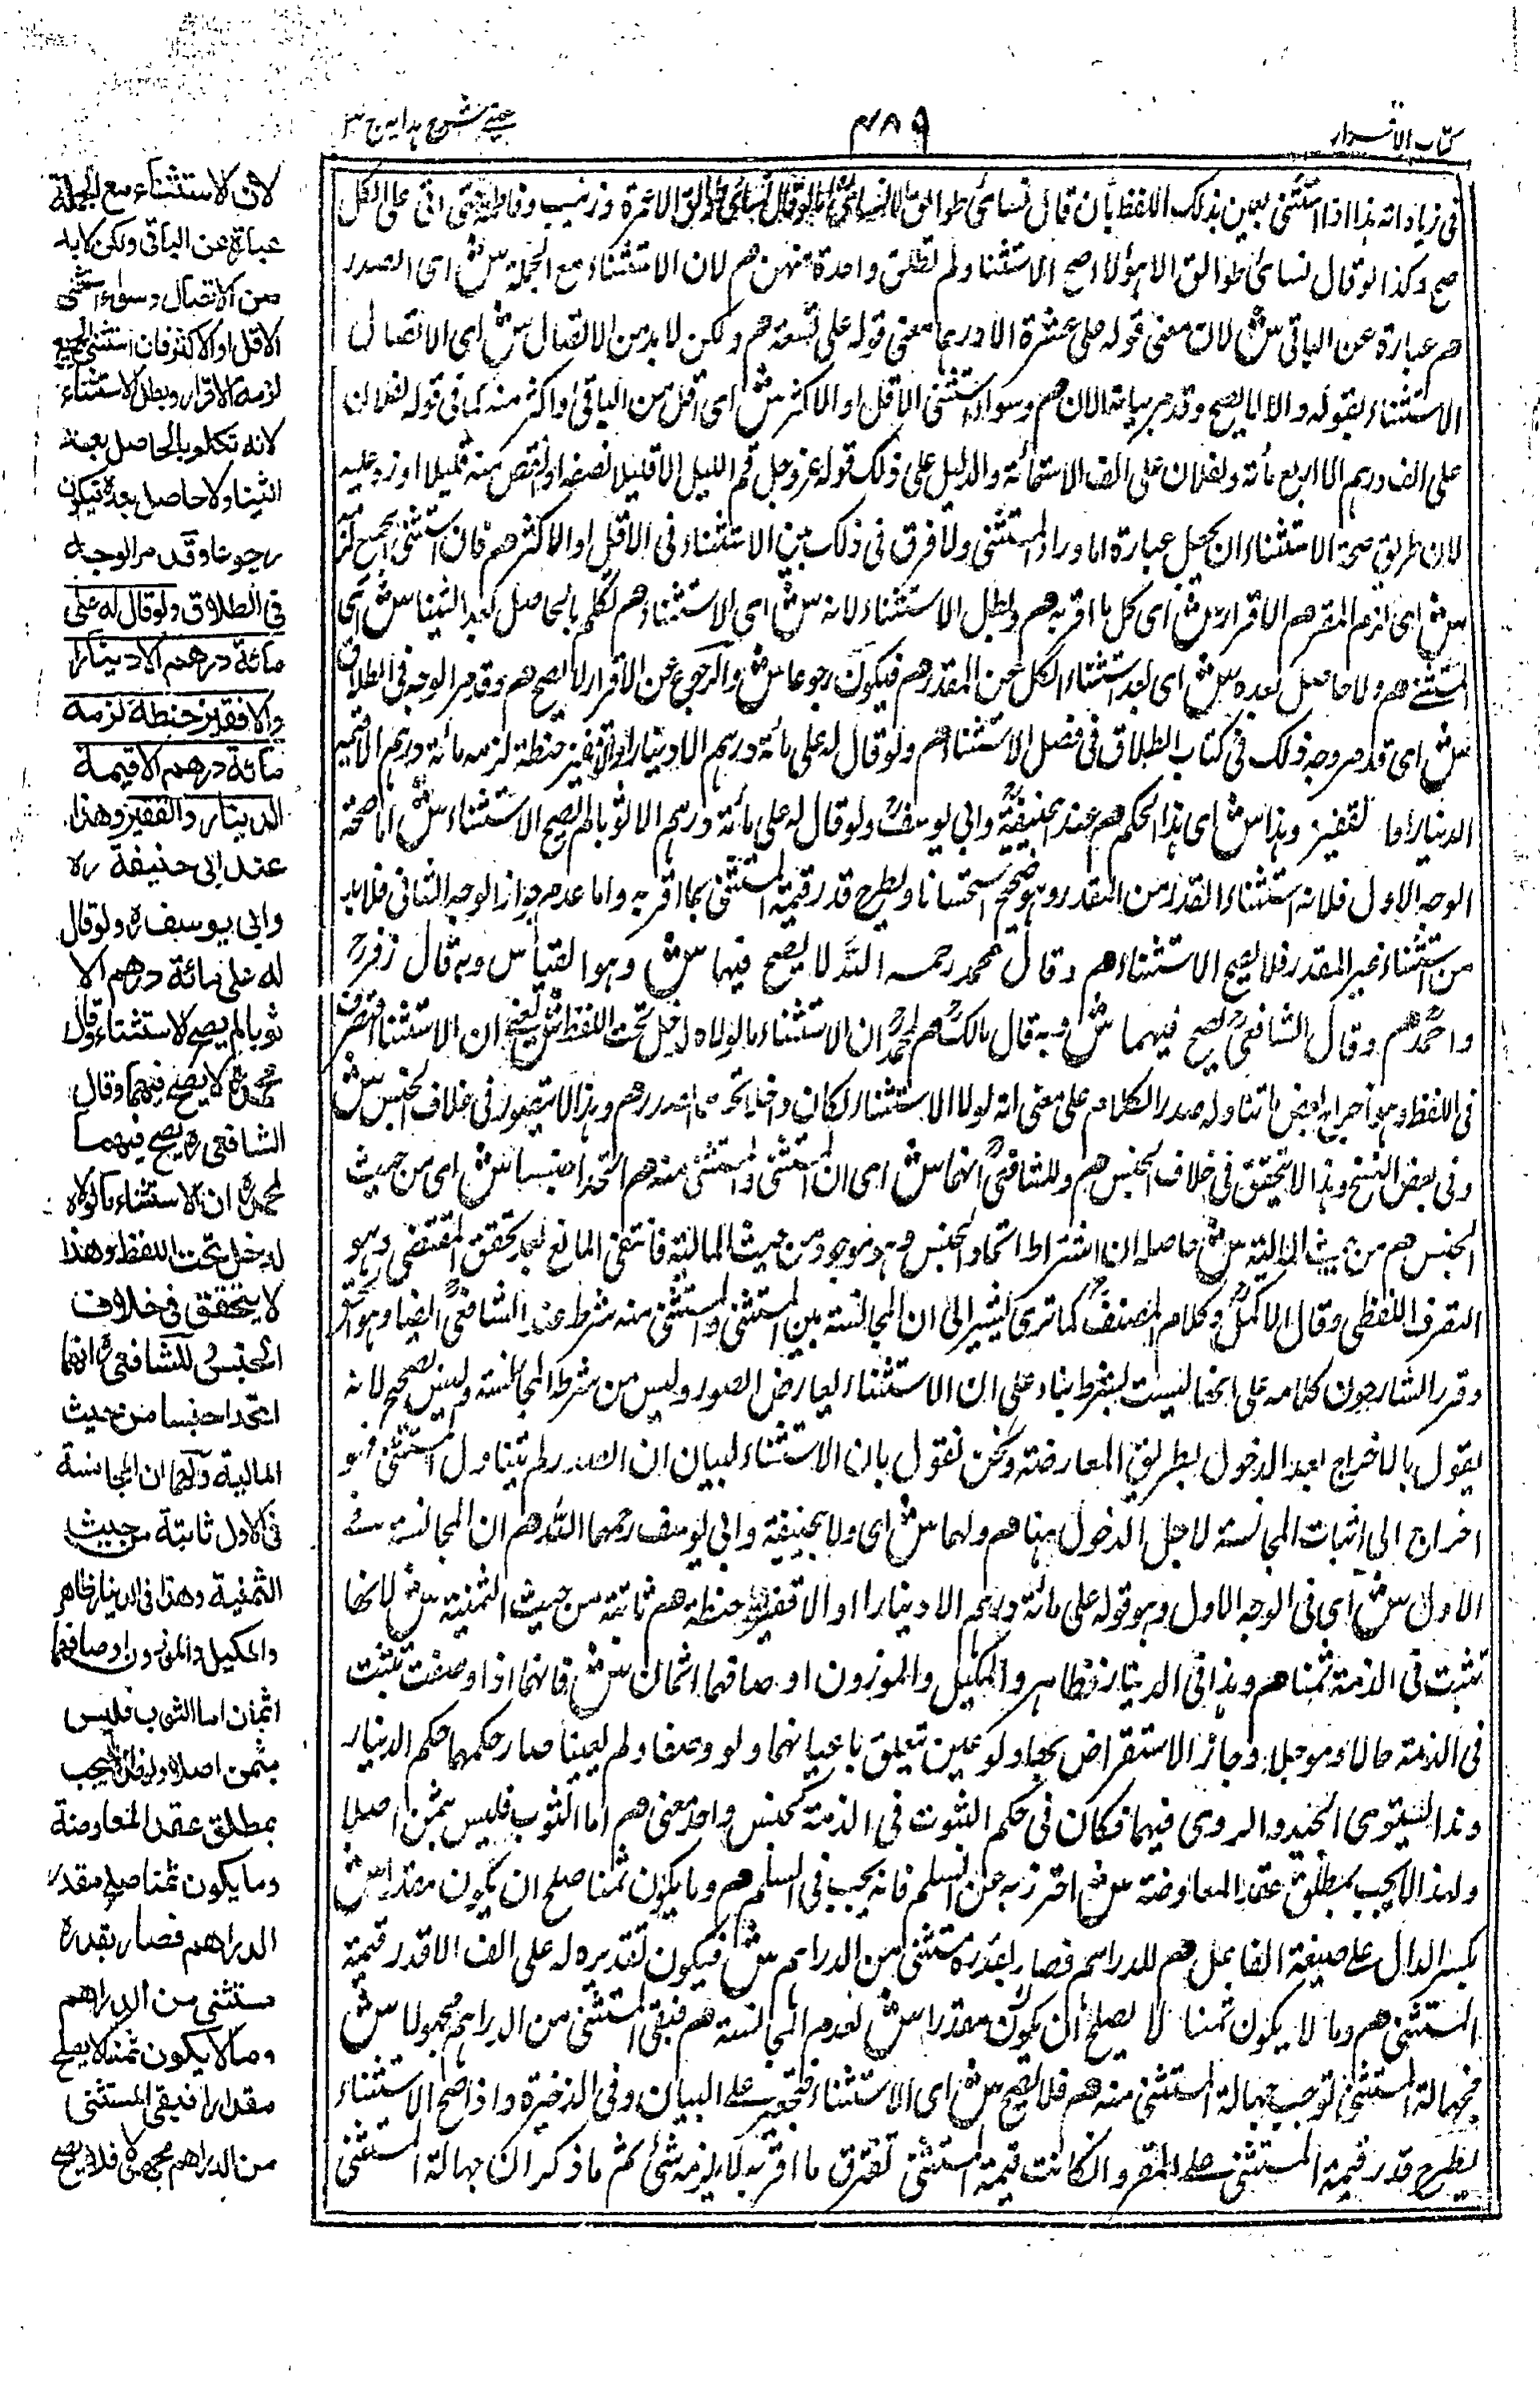 كتاب الاقرار
٤٨٩
عينى شرح هدايه ج ٣
فى زياداته هذا اذا استثنى بعين ذلك اللفظ بأن قال نسائى طوالق الا نسائى اما لو قال نسائى طوالق الا عمرة وزينب وفاطمة حتى اتى على الكل
صح وكذا لو قال نسائى طوالق الا هؤلاء صح الاستثناء ولم تطلق واحدة منهن هم لان الاستثناء مع الجملة ش اى الصدر
هم عبارة عن الباقى ش لان معنى قوله على عشرة الا درهما معنى قوله على تسعة هم ولكن لا بد من الاتصال ش اى الاتصال
الاستثناء بقوله والا لا يصح وقد مر بيانه الان هم وسواء استثنى الاقل او الاكثر ش اى اقل من الباقى او اكثر منه كما فى قوله لفلان
على الف درهم الا اربع مائة ولفلان على الف الا ستمائة والدليل على ذلك قوله عز وجل قم الليل الا قليلا نصفه او انقص منه قليلا او زد عليه
لان طريق صحة الاستثناء ان يجعل عبارة اما وراء المستثنى ولا فرق فى ذلك بين الاستثناء فى الاقل او الاكثر هم فان استثنى الجميع لزمه
ش اى لزم المقر هم الاقرار ش اى كل ما اقر به هم وبطل الاستثناء لانه ش اى الاستثناء هم تكلم بالحاصل بعد الثنيا ش اى
المستثنى هم ولا حاصل بعده ش اى بعد استثناء الكل عن المقدر هم فيكون رجوعا ش والرجوع عن الاقرار لا يصح هم وقد مر الوجه فى الطلاق
ش اى قد مر وجه ذلك فى كتاب الطلاق فى فصل الاستثناء هم ولو قال له على مائة درهم الا دينارا او الا قفيز حنطة لزمه مائة درهم الا قيمة
الدينار او القفيز وهذا ش اى هذا الحكم هم عند ابى حنيفة وابى يوسف ولو قال له على مائة درهم الا ثوبا لم يصح الاستثناء ش اما صحة
الوجه الاول فلانه استثناء المقدر من المقدر وهو صحيح استحسانا ويطرح قدر قيمة المستثنى مما اقر به واما عدم جواز الوجه الثانى فلانه
من استثناء غير المقدر فلا يصح الاستثناء هم وقال محمد رحمه الله لا يصح فيهما ش وهو القياس وبه قال زفر
واحمد هم وقال الشافعى يصح فيهما ش وبه قال مالك هم لمحمد ان الاستثناء ما لولاه لدخل تحت اللفظ ش يعنى ان الاستثناء تصرف
فى اللفظ وهو اخراج بعض ما تناوله صدر الكلام على معنى انه لولا الاستثناء لكان داخلا تحت الصدر هم وهذا لا يتصور فى خلاف الجنس ش
وفى بعض النسخ وهذا لا يتحقق فى خلاف الجنس هم وللشافعى انهما ش اى ان المستثنى والمستثنى منه هم اتحدا جنسا ش اى من حيث
الجنس هم من حيث المالية ش حاصله ان اشتراط اتحاد الجنس وهو موجود من حيث المالية فانتفى المانع بعد تحقق المقتضى وهو
التصرف اللفظى وقال الاكمل وكلام المصنف كما ترى يشير الى ان المجانسة بين المستثنى والمستثنى منه شرط عند الشافعى ايضا وهو الحق
وقرر الشارحون كلامه على انها ليست بشرط بناء على ان الاستثناء يعارض الصدر وليس من شرطه المجانسة وليس بصحيح لانه
يقول بالاخراج بعد الدخول بطريق المعارضة ونحن نقول بان الاستثناء لبيان ان الصدر لم يتناول المستثنى فهو
اخراج الى اثبات المجانسة لاجل الدخول هنا هم ولهما ش اى ولابى حنيفة وابى يوسف رحمهما الله هم ان المجانسة فى
الاول ش اى فى الوجه الاول وهو قوله على مائة درهم الا دينارا او الا قفيز حنطة هم ثابتة من حيث الثمنية ش لانها
تثبت فى الذمة ثمنا هم وهذا فى الدينار ظاهر والمكيل والموزون اوصافهما اثمان ش فانهما اذا وصفت تثبت
فى الذمة حالا ومؤجلا وجائز الاستقراض بهما ولو عين تعلق باعيانهما ولو وصفا ولم يعينا صار حكمهما حكم الدينار
وهذا يستوى الجيد والردى فيهما فكان فى حكم الثبوت فى الذمة كجنس واحد معنى هم اما الثوب فليس بثمن اصلا
ولهذا لا يجب بمطلق عقد المعاوضة ش احترز به عن السلم فانه يجب فى السلم هم وما يكون ثمنا صلح ان يكون مقدرا ش
بكسر الدال على صيغة الفاعل هم للدراهم فصار بقدره مستثنى من الدراهم ش فيكون تقديره له على الف الا قدر قيمة
المستثنى هم وما لا يكون ثمنا لا يصلح ان يكون مقدرا ش لعدم المجانسة هم فبقى المستثنى من الدراهم مجهولا ش
فجهالة المستثنى توجب جهالة المستثنى منه هم فلا يصح ش اى الاستثناء فتجبر على البيان وفى الذخيرة واذا صح الاستثناء
يطرح قدر قيمة المستثنى على المقر وان كانت قيمة المستثنى تستغرق ما اقر به لا يلزمه شئ ثم ما ذكر ان جهالة المستثنى
لان الاستثناء مع الجملة
عبارة عن الباقى ولكن لابد
من الاتصال وسواء استثنى
الاقل او الاكثر فان استثنى الجميع
لزمه الاقرار وبطل الاستثناء
لانه تكلم بالحاصل بعد
الثنيا ولا حاصل بعده فيكون
رجوعا وقد مر الوجه
فى الطلاق ولو قال له على
مائة درهم الا دينارا
والا قفيز حنطة لزمه
مائة درهم الا قيمة
الدينار والقفيز وهذا
عند ابى حنيفة ره
وابى يوسف ره ولو قال
له على مائة درهم الا
ثوبا لم يصح الاستثناء وقال
محمد ره لا يصح فيهما وقال
الشافعى ره يصح فيهما
لمحمد ره ان الاستثناء ما لولاه
لدخل تحت اللفظ وهذا
لا يتحقق فى خلاف
الجنس وللشافعى ره انهما
اتحدا جنسا من حيث
المالية ولهما ان المجانسة
فى الاول ثابتة من حيث
الثمنية وهذا فى الدينار ظاهر
والمكيل والموزون اوصافهما
اثمان اما الثوب فليس
بثمن اصلا ولهذا لا يجب
بمطلق عقد المعاوضة
وما يكون ثمنا صلح مقدرا
الدراهم فصار بقدره
مستثنى من الدراهم
وما لا يكون ثمنا لا يصلح
مقدرا فبقى المستثنى
من الدراهم مجهولا فلا يصح